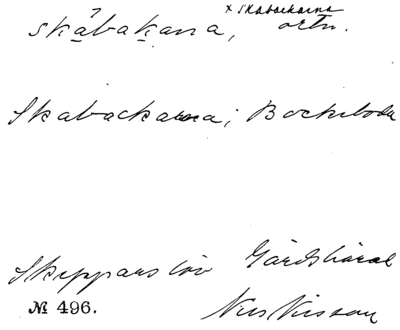 × Skabackarna
skåbakana, ortn.
Skabackarna; Bockeboda
Skepparslöv Gärds härad
№ 496. Nils Nilsson